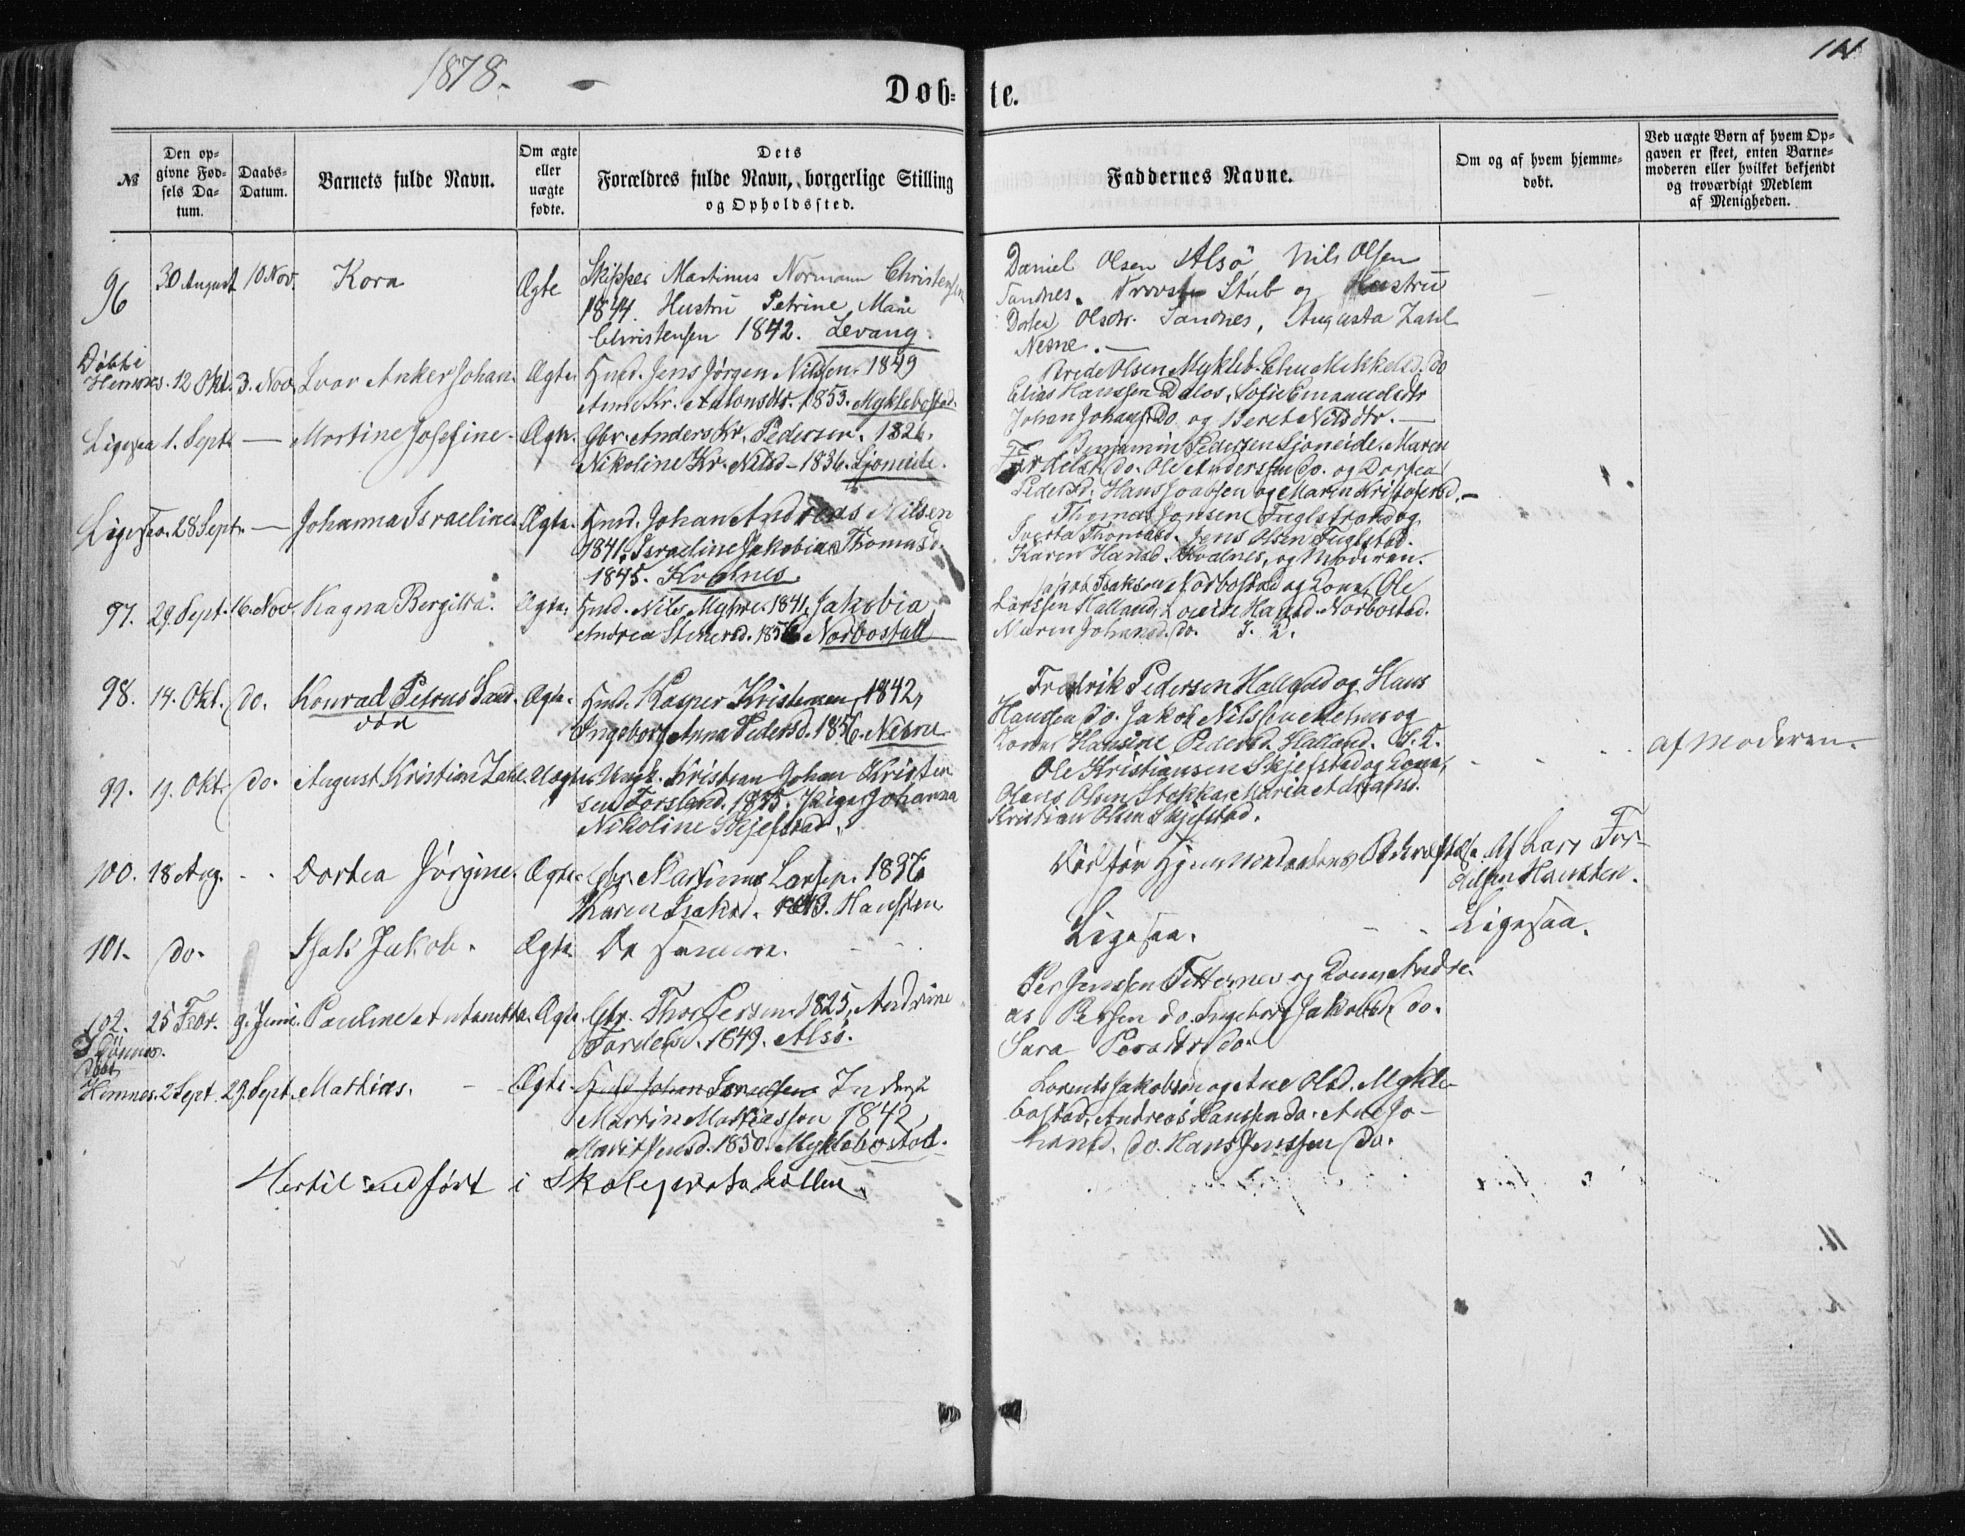 1878.
111
Døb=te.
№
Den op=
givne Fød=
sels Da=
tum.
Daabs=
Datum.
Barnets fulde Navn.
Om ægte
eller
uægte
fødte.
Dets
Forældres fulde Navn, borgerlige Stilling
og Opholdssted.
Faddernes Navne.
Om og af hvem hjemme=
døbt.
Ved uægte Børn af hvem Op=
gaven er skeet, enten Barne=
moderen eller hvilket bekjendt
og troværdigt Medlem
af Menigheden.
96 30 August 10 Nov. Kora Ægte Skipper Martinus Normann Christensen
1844. Hustru Petrine Marie
Christensen 1842. Levang.
Daniel Olsen Alsö Nils Olsen
Sandnes. Provst Stub og Hustru
Dortea Olsdtr. Sandnes, Augusta Zahl
Nesne.
Døbt i
Hemnes. 12 Okt. 3. Nov. Ivar Anker Johan. Ægte. Husm. Jens Jørgen Nilssen. 1849
Anne Kr. Antonsdtr. 1853. Myklebostad.
Olsen Mykleb. Mikkelsd. do
Elias Hanssen Dalos, Sofie Emanuelsdtr
Johan Johans. Do og Beret Nilsdtr.
Ligesaa 1. Sept. — Martine Josefine. Ægte. Gbr. Anders Kr. Pedersen. 1826.
Nikoline Kr. Nilsd. 1836. Sjoneide.
Benjamin Pedersen Sjoneide. Maren
do. Ole Andersen do. og Dortea
Pedersd. Hans Joabsen og Maren Kristofersd.
Ligesaa. 28 Sept. — Johanna Israeline. Ægte. Husm. Johan Andreas Nilsen
1841. Israeline Jakobia Thomasd.
1845. Kvalnes
Thomas Jonsen Fuglstrand og
Thomasd. Jens Olsen Fuglstad.
Karen Hansd. Kvalnes, og Moderen.
97. 29. Sept. 16. Nov. Ragna Bergitta. Ægte. Husm. Nils Myhre. 1841, Jakobia
Andrea Steensd. 1856 Norbostad
Jakob Isaksen Norbostad og Kone, Ole
Larssen Halland, Hansd. Norbostad.
Maren Johansd. do.
98. 14. Okt. do. Konrad Petrus Sand-
van
Ægte. Husm. Kasper Kristensen, 1842,
Ingeborg Anna Pedersd. 1856. Nesne
Fredrik Pedersen Halland og Hans
Hanssen do. Jakob Nilssen og
Kone, Hansine Pedersd. Halland.
99. 19. Okt. do. August Kristian Zahl. Uægte Ungk. Kristian Johan Kristen
sen Forsland. 1855. Pige Johanna
Nikoline Skjefstad.
Ole Kristiansen Skjefstad og Kone,
Olaus Olsen Maria
Kristian Olsen Skjefstad.
af Moderen.
100. 18 Aug. - - Dortea Jörgine. Ægte. Gbr. Martinus Larsen. 1836
Karen Isaksd. 1843. Hansten
Död før Hjemmedaabens Bekræftelse. Af Lars Tor-
Hausten.
101. do. Isak Jakob. Ægte. De samme.
Ligesaa.
Ligesaa.
102. 25 Febr. 9. Juni. Pauline Antonetta. Ægte. Gbr. Thor Persen. 1825, Andrine
Tordersd. 1849. Alsö.
i Dönnes.
Per Jenssen Titternes og Kone, Andre-
as Persen do. Ingeborg Jakobsd. do.
Sara Persdtr. do.
Döbt
Hemnes. 2 Sept. 29. Sept. Mathias. — Ægte. Husm Johan Israelsen Inderst
Martin Mathiessen 1842,
Marit Jensd. 1850. Myklebostad.
Lorents Jakobsen og Ane Olsd. Mykle-
bostad, Andreas Hanssen do. Ane Jo-
hansd. do. Hans Jenssen do.
Hertil indført i Skoleprotokollen.